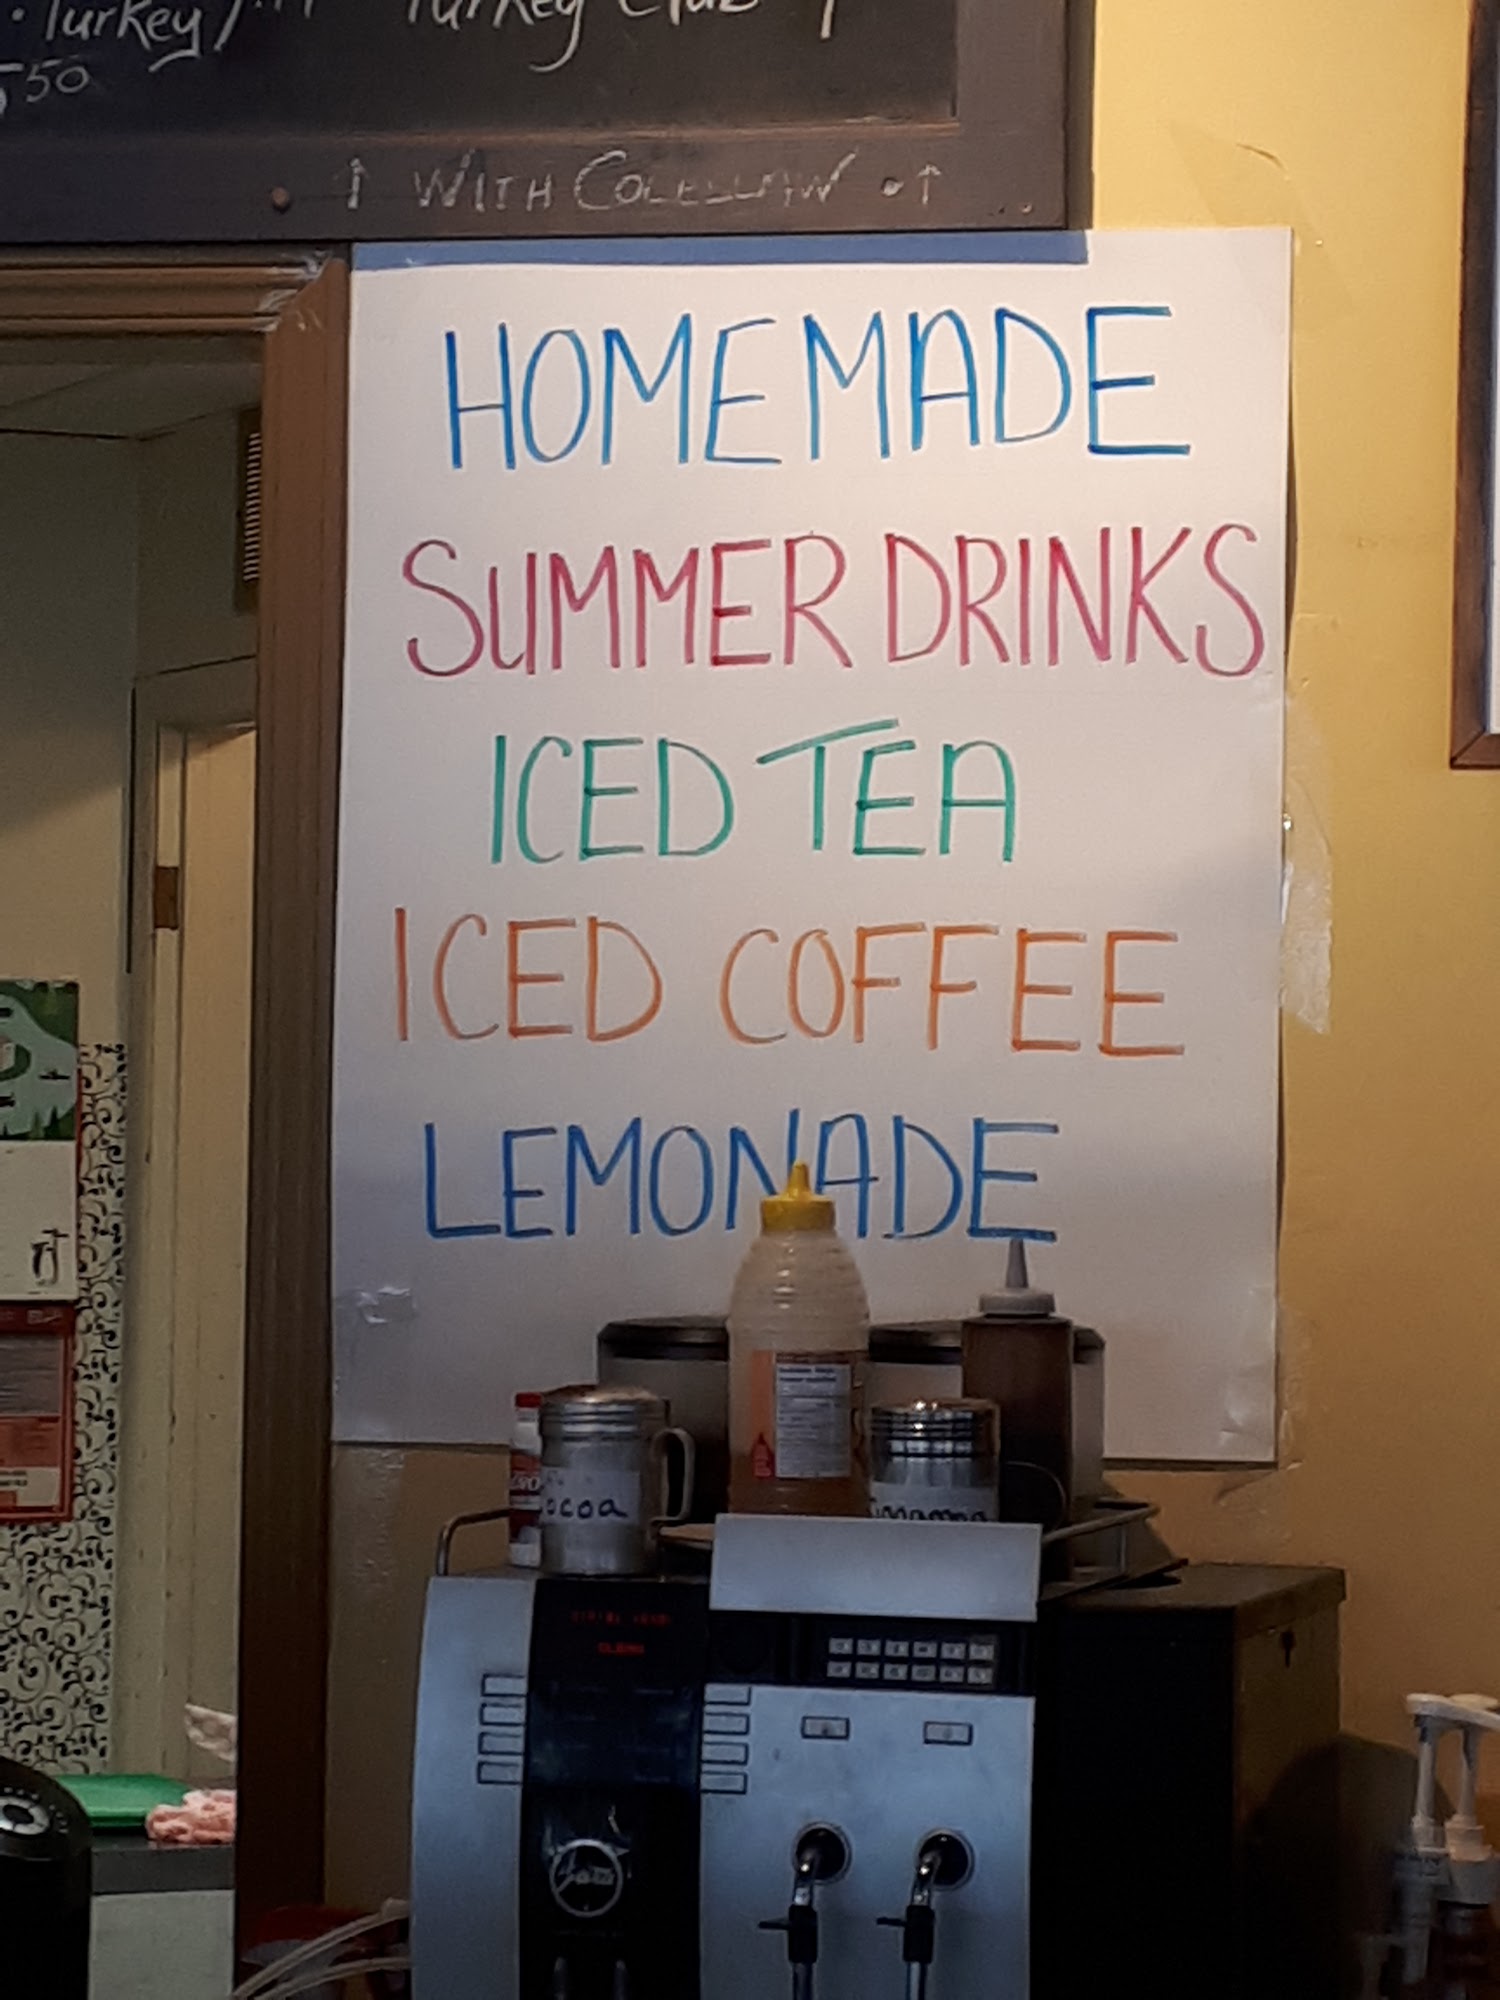 · Turkey
Turkey Club
50
↑ WITH COLESLAW · ↑
HOMEMADE
SUMMER DRINKS
ICED TEA
ICED COFFEE
LEMONADE
cocoa
Cinnamon
Jura